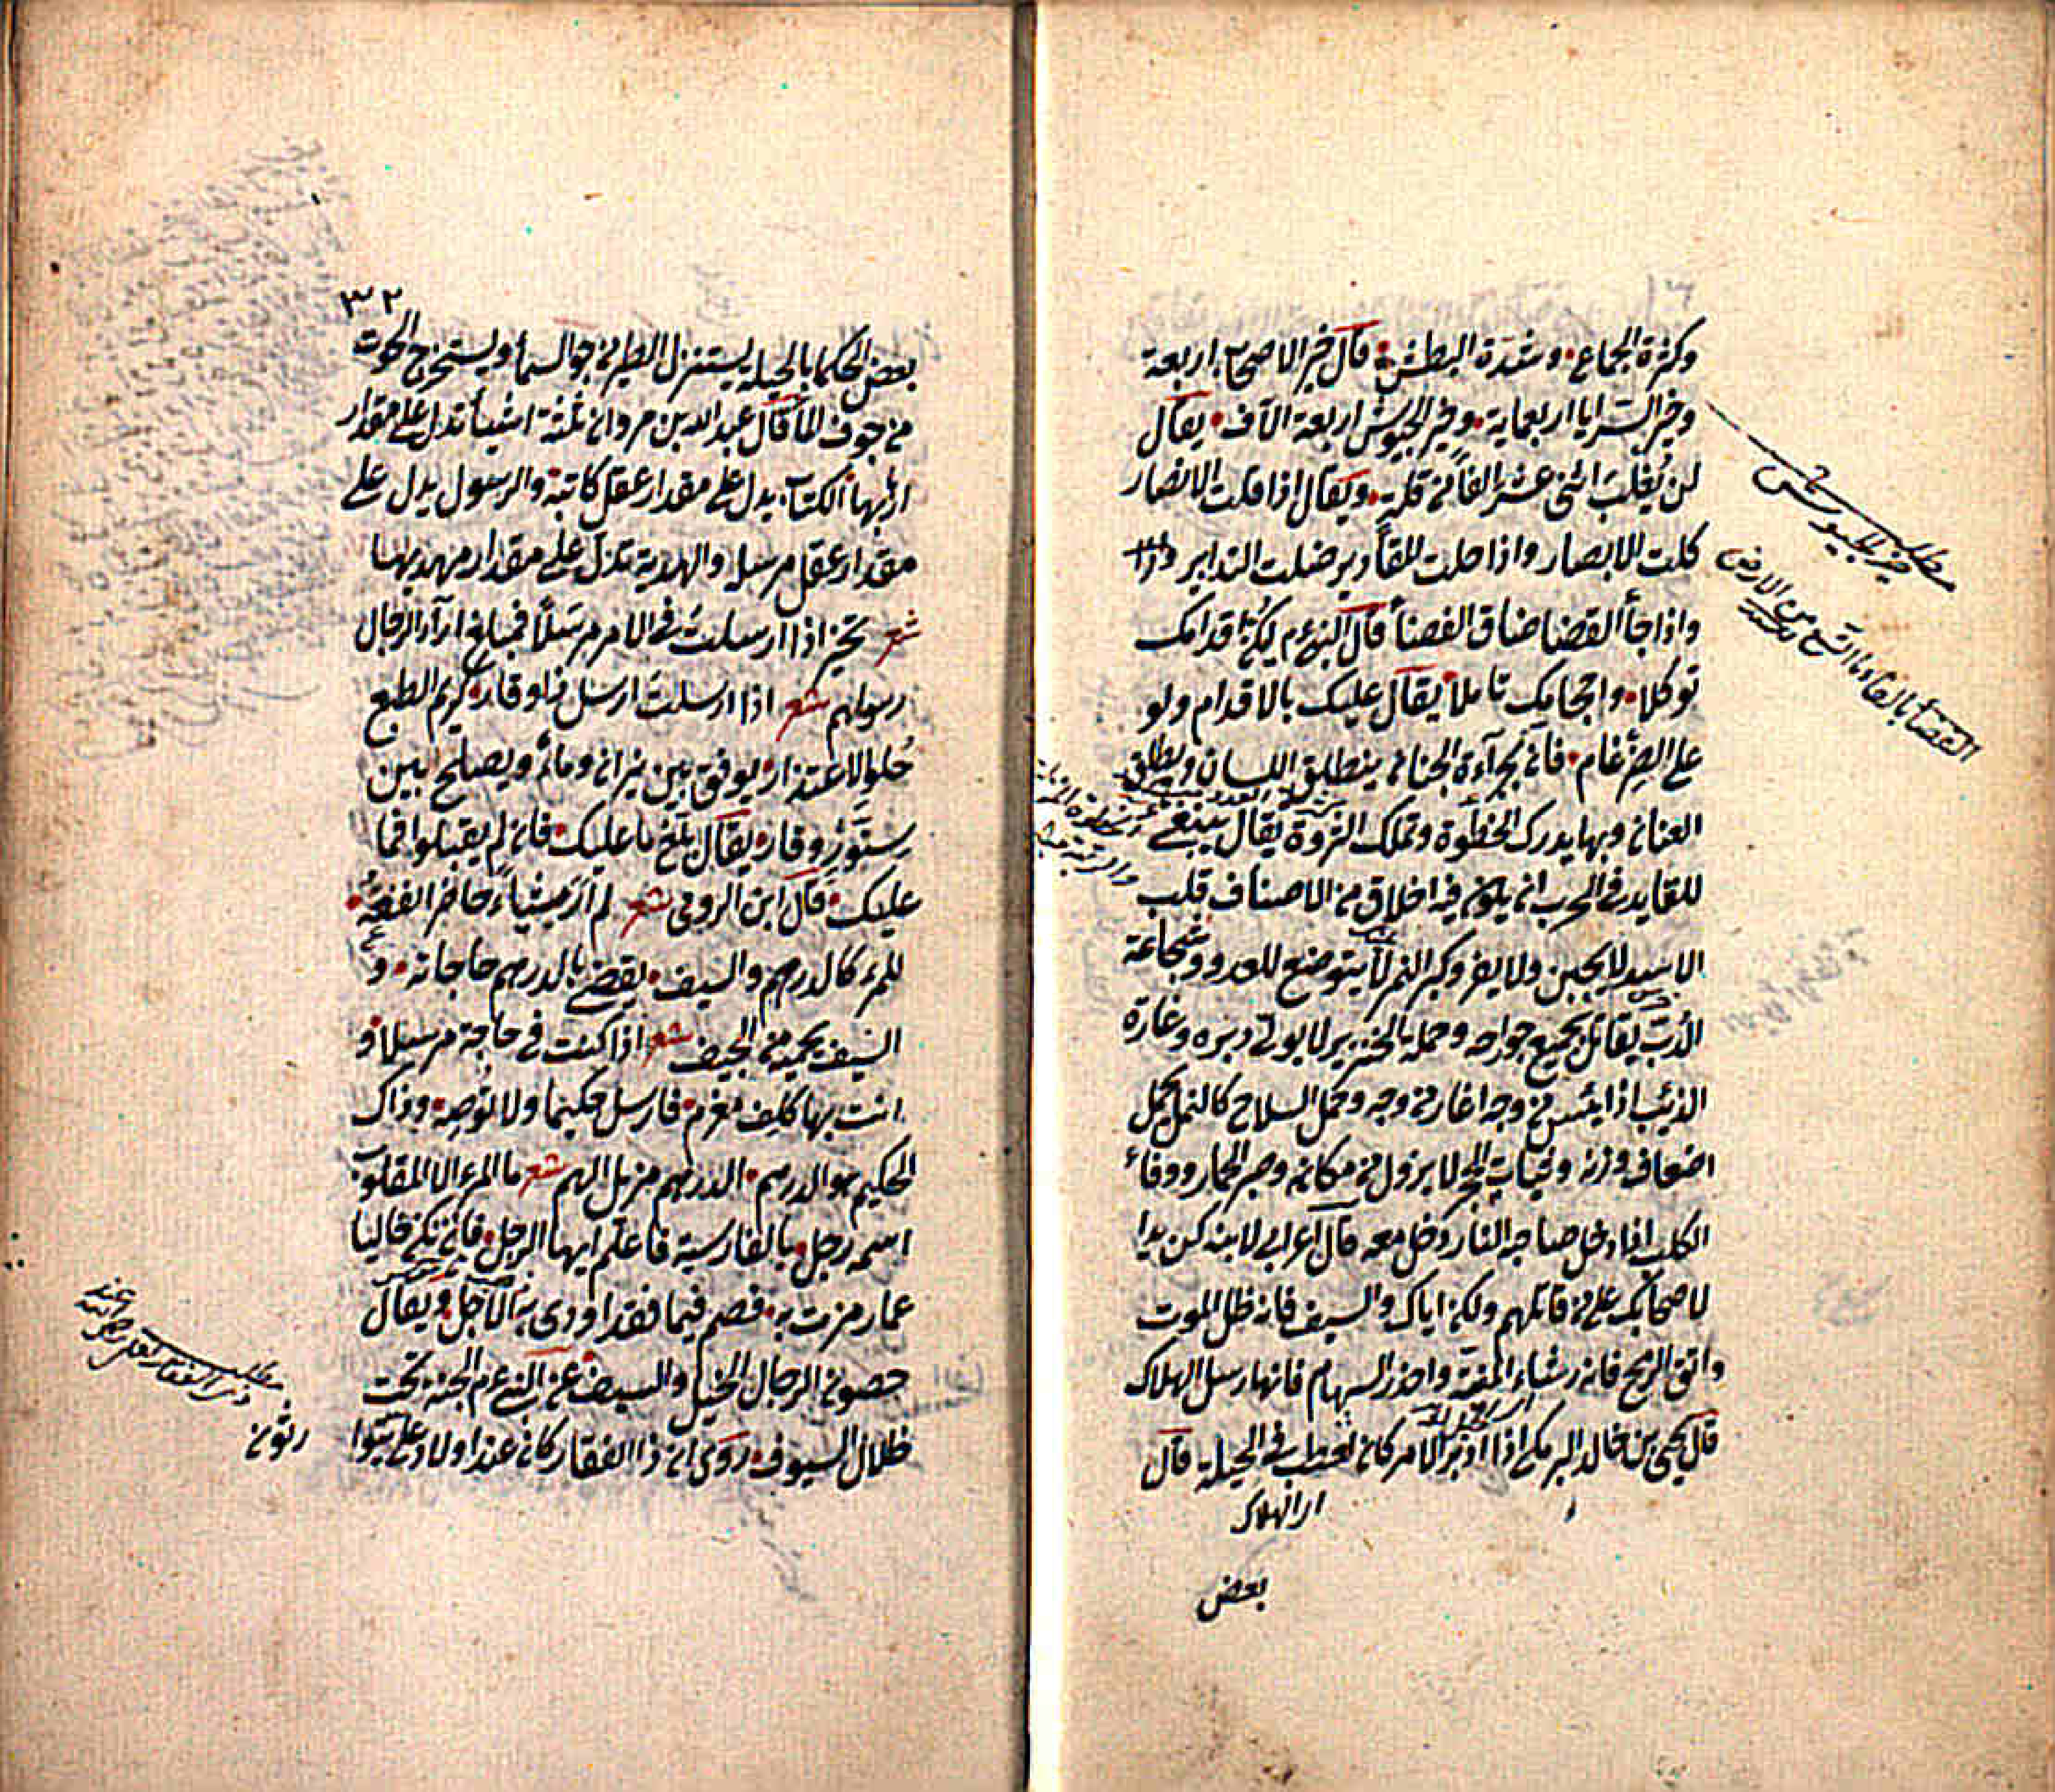 وكثرة الجماع وشدة البطش قال خير الاصحاب اربعة
وخير السرايا اربعماية وخير الجيوش اربعة الآف يقال
لن يُغلبَ اثنى عشر الفاً من قلة ويقال اذا قلت الانصار
كلت الابصار واذا حلت المقادير ضلت التدابير
واذا جأ القضا ضاق الفضأ قال النبى عم ليكن اقدامك
توكلا واحجامك تاملا يقال عليك بالاقدام ولو
على الضرغام فان بجرآءة الجنان ينطلق اللسان ويطلق
العنان وبها يدرك الخطوة وتملك الثروة يقال ينبغى
للقايد فى الحرب ان يكون فيه اخلاق من الاصناف قلب
الاسد لا يجبن ولا يفر وكبر النمر لا يتوضع للعدو وشجاعة
الدب يقاتل بجميع جوارحه وحملة الخنزير لا يولى دبره وغارة
الذئب اذا يئس من وجه اغار من وجه وحمل السلاح كالنمل يحمل
اضعاف وزنه وثبات الحجر لا يزول من مكانه وصبر الحمار ووفاء
الكلب اذا دخل صاحبه النار دخل معه قال اعرابى لابنه كن يدا
لاصحابك على من قاتلهم ولكن اياك والسيف فانه ظل الموت
واتق الرمح فانه رشاء المنية واحذر السهام فانها رسل الهلاك
قال يحيى بن خالد البرمكى اذا ادبر الامر كان العطب فى الحيلة قال
اى الهلاك
بعض
مطلب خير الجيوش
٣٢
بعض الحكما بالحيلة يستنزل الطير من جو السمأ ويستخرج الحوت
من جوف المأ قال عبد الله بن مروان ثلثة اشيأ تدل على مقدار
اربابها الكتاب يدل على مقدار عقل كاتبه والرسول يدل على
مقدار عقل مرسله والهدية تدل على مقدار مهديها
شعر تخير اذا ارسلت فى الامر مرسلاً فمبلغ ارآء الرجال
رسولهم شعر اذا ارسلت ارسل ذا وقار كريم الطبع
حُلو الاعتذار يوفق بين نيران ومآء ويصلح بين
سنّور وفار يقال بلّغ ما عليك فان لم يقبلوا فما
عليك قال ابن الرومى شعر لم أرَ شياءً حاضر النفعة
للمرء كالدرهم والسيف يقضى بالدرهم حاجاته و
السيف يحميه من الحيف شعر اذا كنت فى حاجة مرسلا و
انت بها كلف مغرم فارسل حكيما ولا توصه وذاك
الحكيم هو الدرهم الدرهم مزيل الهم شعر ما المرء الا المقلوب
اسمه رجل بالفارسية فاعلم ايها الرجل فان تكن خاليا
عما رمزت به فصم فيما فقد اودى به الاجل ويقال
حصون الرجال الخيل والسيف عن النبى عم الجنة تحت
ظلال السيوف روى ان ذا الفقار كان عند اولاد على يتوا
رثون